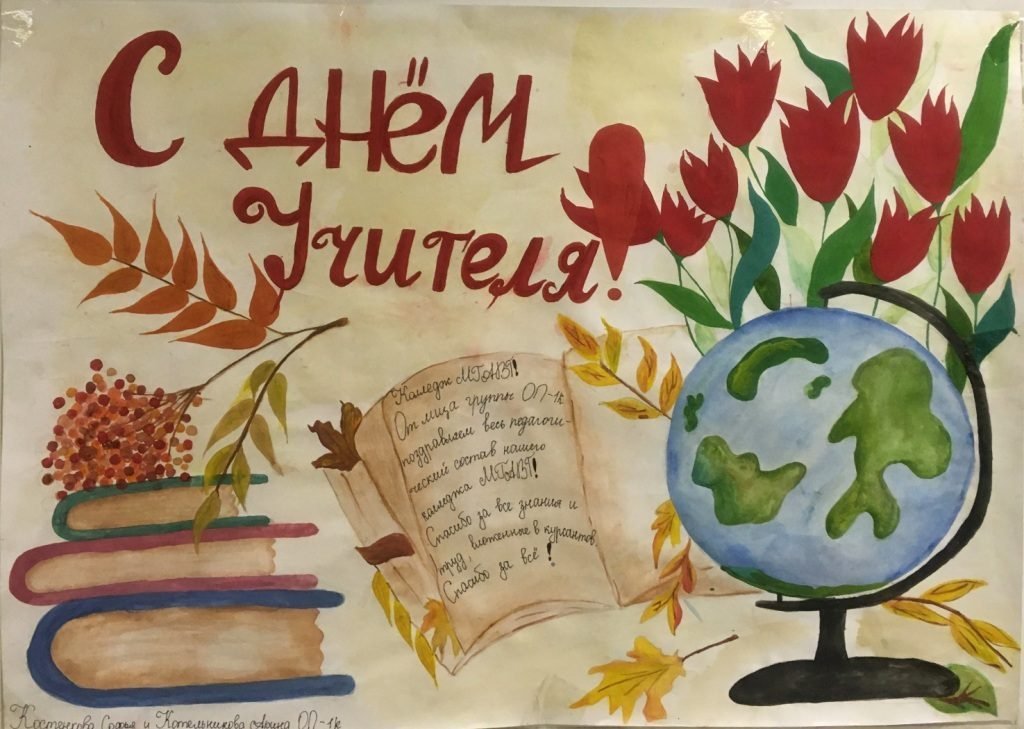 С днём
Учителя!
Колледж МГАВТ!
От лица группы ОП-1к
поздравляем весь педагоги-
ческий состав нашего
колледжа МГАВТ!
Спасибо за все знания и
труд, вложенные в курсантов,
Спасибо за всё!
Костенкова Софья и Котельникова Арина ОП-1к